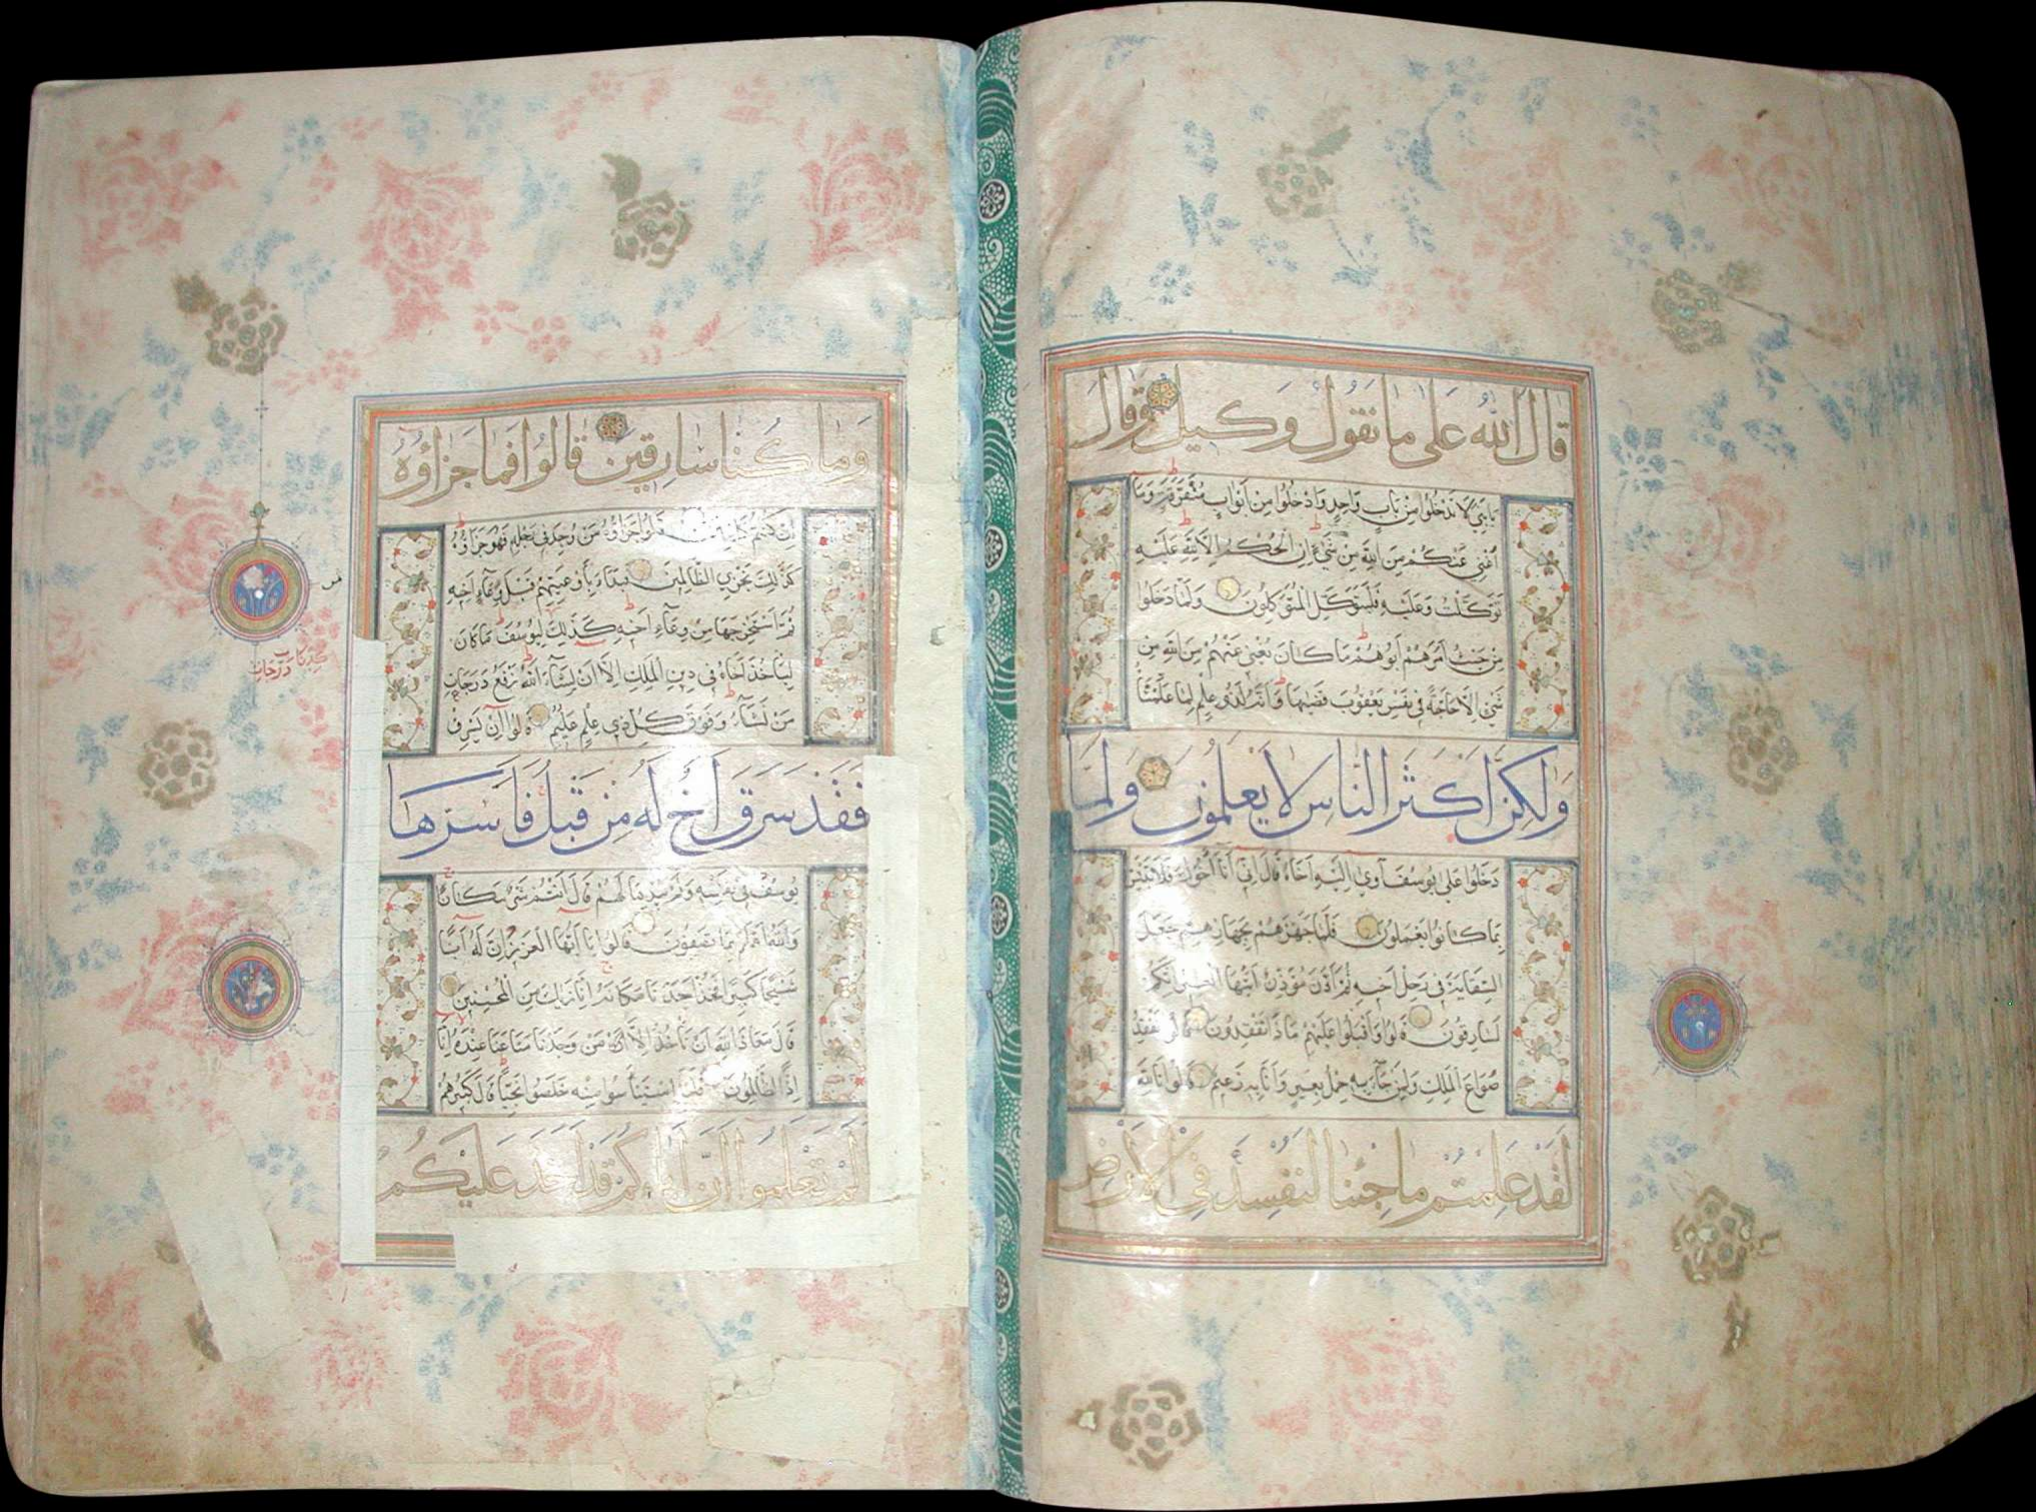 قَالَ اللَّهُ عَلَى مَا نَقُولُ وَكِيلٌ وَقَالَ
يَا بَنِيَّ لَا تَدْخُلُوا مِنْ بَابٍ وَاحِدٍ وَادْخُلُوا مِنْ أَبْوَابٍ مُتَفَرِّقَةٍ وَمَا
أُغْنِي عَنْكُمْ مِنَ اللَّهِ مِنْ شَيْءٍ إِنِ الْحُكْمُ إِلَّا لِلَّهِ عَلَيْهِ
تَوَكَّلْتُ وَعَلَيْهِ فَلْيَتَوَكَّلِ الْمُتَوَكِّلُونَ وَلَمَّا دَخَلُوا
مِنْ حَيْثُ أَمَرَهُمْ أَبُوهُمْ مَا كَانَ يُغْنِي عَنْهُمْ مِنَ اللَّهِ مِنْ
شَيْءٍ إِلَّا حَاجَةً فِي نَفْسِ يَعْقُوبَ قَضَيهَا وَإِنَّهُ لَذُو عِلْمٍ لِمَا عَلَّمْنَاهُ
وَلَكِنَّ أَكْثَرَ النَّاسِ لَا يَعْلَمُونَ وَلَمَّا
دَخَلُوا عَلَى يُوسُفَ آوَى إِلَيْهِ أَخَاهُ قَالَ إِنِّي أَنَا أَخُوكَ فَلَا تَبْتَئِسْ
بِمَا كَانُوا يَعْمَلُونَ فَلَمَّا جَهَّزَهُمْ بِجَهَازِهِمْ جَعَلَ
السِّقَايَةَ فِي رَحْلِ أَخِيهِ ثُمَّ أَذَّنَ مُؤَذِّنٌ أَيَّتُهَا الْعِيرُ إِنَّكُمْ
لَسَارِقُونَ قَالُوا وَأَقْبَلُوا عَلَيْهِمْ مَاذَا تَفْقِدُونَ قَالُوا نَفْقِدُ
صُوَاعَ الْمَلِكِ وَلِمَنْ جَاءَ بِهِ حِمْلُ بَعِيرٍ وَأَنَا بِهِ زَعِيمٌ قَالُوا تَاللَّهِ
لَقَدْ عَلِمْتُمْ مَا جِئْنَا لِنُفْسِدَ فِي الْأَرْضِ
وَمَا كُنَّا سَارِقِينَ قَالُوا فَمَا جَزَاؤُهُ
إِنْ كُنْتُمْ كَاذِبِينَ قَالُوا جَزَاؤُهُ مَنْ وُجِدَ فِي رَحْلِهِ فَهُوَ جَزَاؤُهُ
كَذَلِكَ نَجْزِي الظَّالِمِينَ فَبَدَأَ بِأَوْعِيَتِهِمْ قَبْلَ وِعَاءِ أَخِيهِ
ثُمَّ اسْتَخْرَجَهَا مِنْ وِعَاءِ أَخِيهِ كَذَلِكَ كِدْنَا لِيُوسُفَ مَا كَانَ
لِيَأْخُذَ أَخَاهُ فِي دِينِ الْمَلِكِ إِلَّا أَنْ يَشَاءَ اللَّهُ نَرْفَعُ دَرَجَاتٍ
مَنْ نَشَاءُ وَفَوْقَ كُلِّ ذِي عِلْمٍ عَلِيمٌ قَالُوا إِنْ يَسْرِقْ
فَقَدْ سَرَقَ أَخٌ لَهُ مِنْ قَبْلُ فَأَسَرَّهَا
يُوسُفُ فِي نَفْسِهِ وَلَمْ يُبْدِهَا لَهُمْ قَالَ أَنْتُمْ شَرٌّ مَكَانًا
وَاللَّهُ أَعْلَمُ بِمَا تَصِفُونَ قَالُوا يَا أَيُّهَا الْعَزِيزُ إِنَّ لَهُ أَبًا
شَيْخًا كَبِيرًا فَخُذْ أَحَدَنَا مَكَانَهُ إِنَّا نَرَاكَ مِنَ الْمُحْسِنِينَ
قَالَ مَعَاذَ اللَّهِ أَنْ نَأْخُذَ إِلَّا مَنْ وَجَدْنَا مَتَاعَنَا عِنْدَهُ إِنَّا
إِذًا لَظَالِمُونَ فَلَمَّا اسْتَيْأَسُوا مِنْهُ خَلَصُوا نَجِيًّا قَالَ كَبِيرُهُمْ
أَلَمْ تَعْلَمُوا أَنَّ أَبَاكُمْ قَدْ أَخَذَ عَلَيْكُمْ